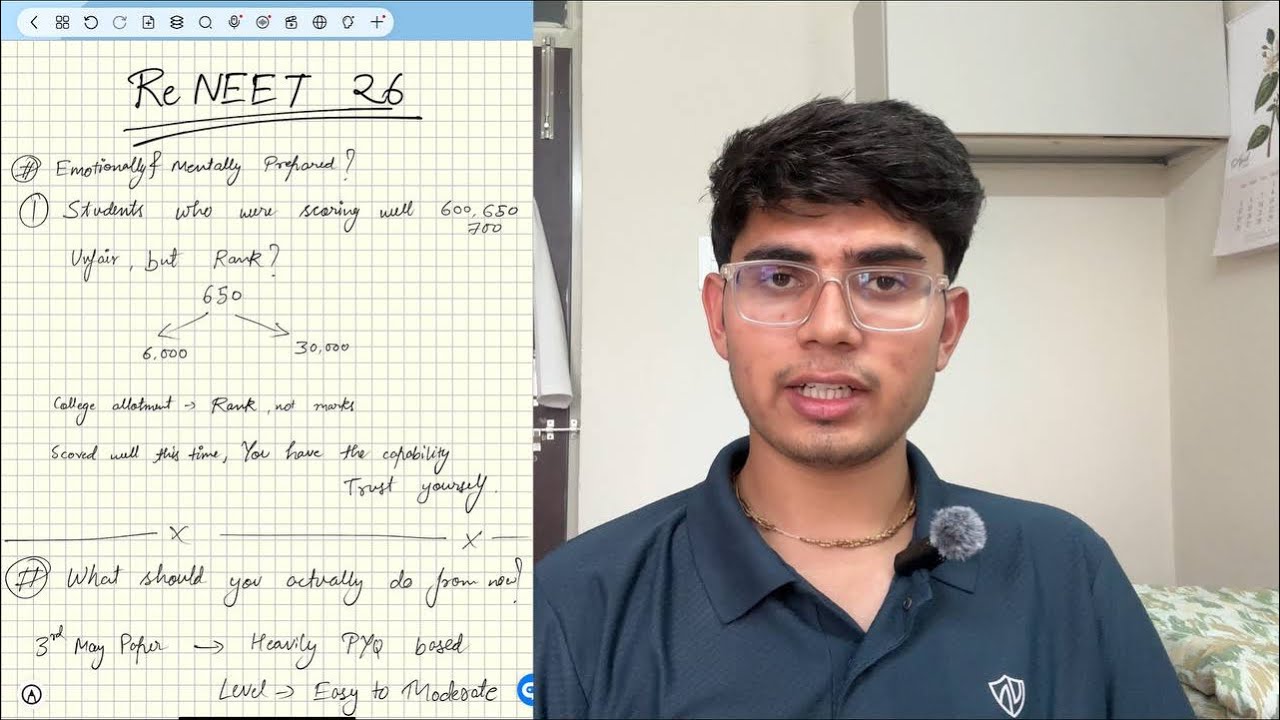 Re NEET 26
# Emotionally & Mentally Prepared?
1 Students who were scoring well 600, 650
700
Unfair, but Rank?
650
6,000 30,000
College allotment → Rank, not marks
Scored well this time, You have the capability
Trust yourself.
x x
# What should you actually do from now?
3rd May Paper → Heavily PYQ based
Level → Easy to Moderate
A
April